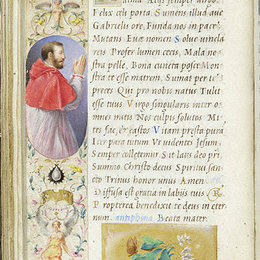 Alma Atqs semper virgo.
Felix celi porta Sumens illud aue
Gabrielis ore, Funda nos in pace
Mutans Euæ nomen Solue uincla
reis Profer lumen cecis, Mala no
stra pelle, Bona cuncta posce Mon
stra te esse matrem, Sumat per te
preces Qui pro nobis natus Tulit
esse tuus Virgo singularis inter o
mnes mitis Nos culpis solutos Mi
tes fac, & castos Vitam præsta puram
Iter para tutum Vt uidentes Iesum
Semper colletemur Sit laus deo pri
Summo Christo decus Spiritui san
cto Trinus honor unus Amen.
Diffusa est gratia in labijs tuis ℟
Propterea benedixit te deus in eter
num antiphona Beata mater.